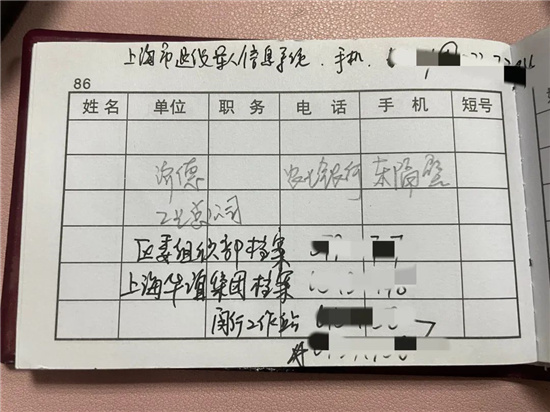 上海市退役军人信息系统. 手机.
86
姓名 单位 职务 电话 手机 短号
农业银行 东隔壁
工业总公司
区委组织部档案
上海华谊集团档案
闵行工作站